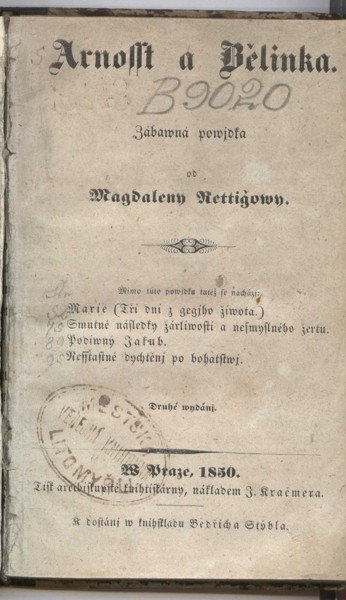 Arnosst a Bělinka.
B9020
Zábawná powjdka
od
Magdaleny Rettigowy.
Mimo tuto powjdku tatéž se nacházj:
Marie (Tři dni z gegjho života.)
79 Smutné následky žárliwosti a nesmyslného žertu.
89 Podiwný Jakub.
Nessťastné dychtěnj po bohatstwj.
Druhé wydánj.
MĚSTSK
LITOMYŠL
W Praze, 1850.
Tisk arcibiskupské knihtiskárny, nákladem J. Kračmera.
K dostánj w knihskladu Bedřicha Stýbla.